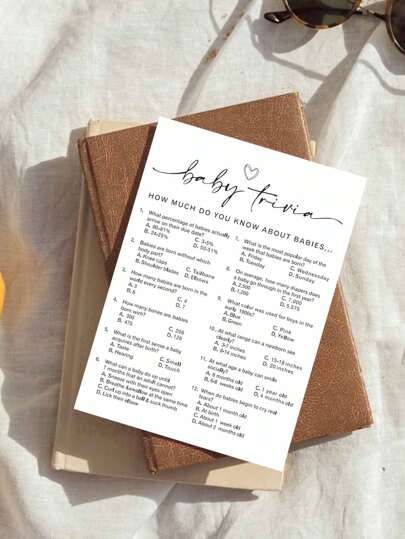 baby trivia
HOW MUCH DO YOU KNOW ABOUT BABIES...
1. What percentage of babies actually
arrive on their due date?
A. 80-81% C. 3-5%
B. 24-25% D. 50-51%
2. Babies are born without which
body part?
A. Knee caps C. Tailbone
B. Shoulder blades D. Elbows
3. How many babies are born in the
world every second?
A. 3 C. 4
B. 8 D. 7
4. How many bones are babies
born with?
A. 300 C. 206
B. 475 D. 126
5. What is the first sense a baby
acquires after birth?
A. Taste C. Smell
B. Hearing D. Touch
6. What can a baby do up until
7 months that an adult cannot?
A. Sneeze with their eyes open
B. Breathe & swallow at the same time
C. Curl up into a ball & suck thumb
D. Lick their elbow
7. What is the most popular day of the
week that babies are born?
A. Friday C. Wednesday
B. Tuesday D. Sunday
8. On average, how many diapers does
a baby go through in the first year?
A. 2,500 C. 7,000
B. 1,200 D. 5,575
9. What color was used for boys in the
early 1900s?
A. Blue C. Pink
B. Green D. Yellow
10. At what range can a newborn see
clearly?
A. 3-7 inches C. 15-18 inches
B. 8-14 inches D. 20 inches
11. At what age a baby can smile
socially?
A. 5 months old C. 1 year old
B. 6-8 weeks old D. 4 months old
12. When do babies begin to cry real
tears?
A. About 1 month old
B. At birth
C. About 1 week old
D. About 2 months old